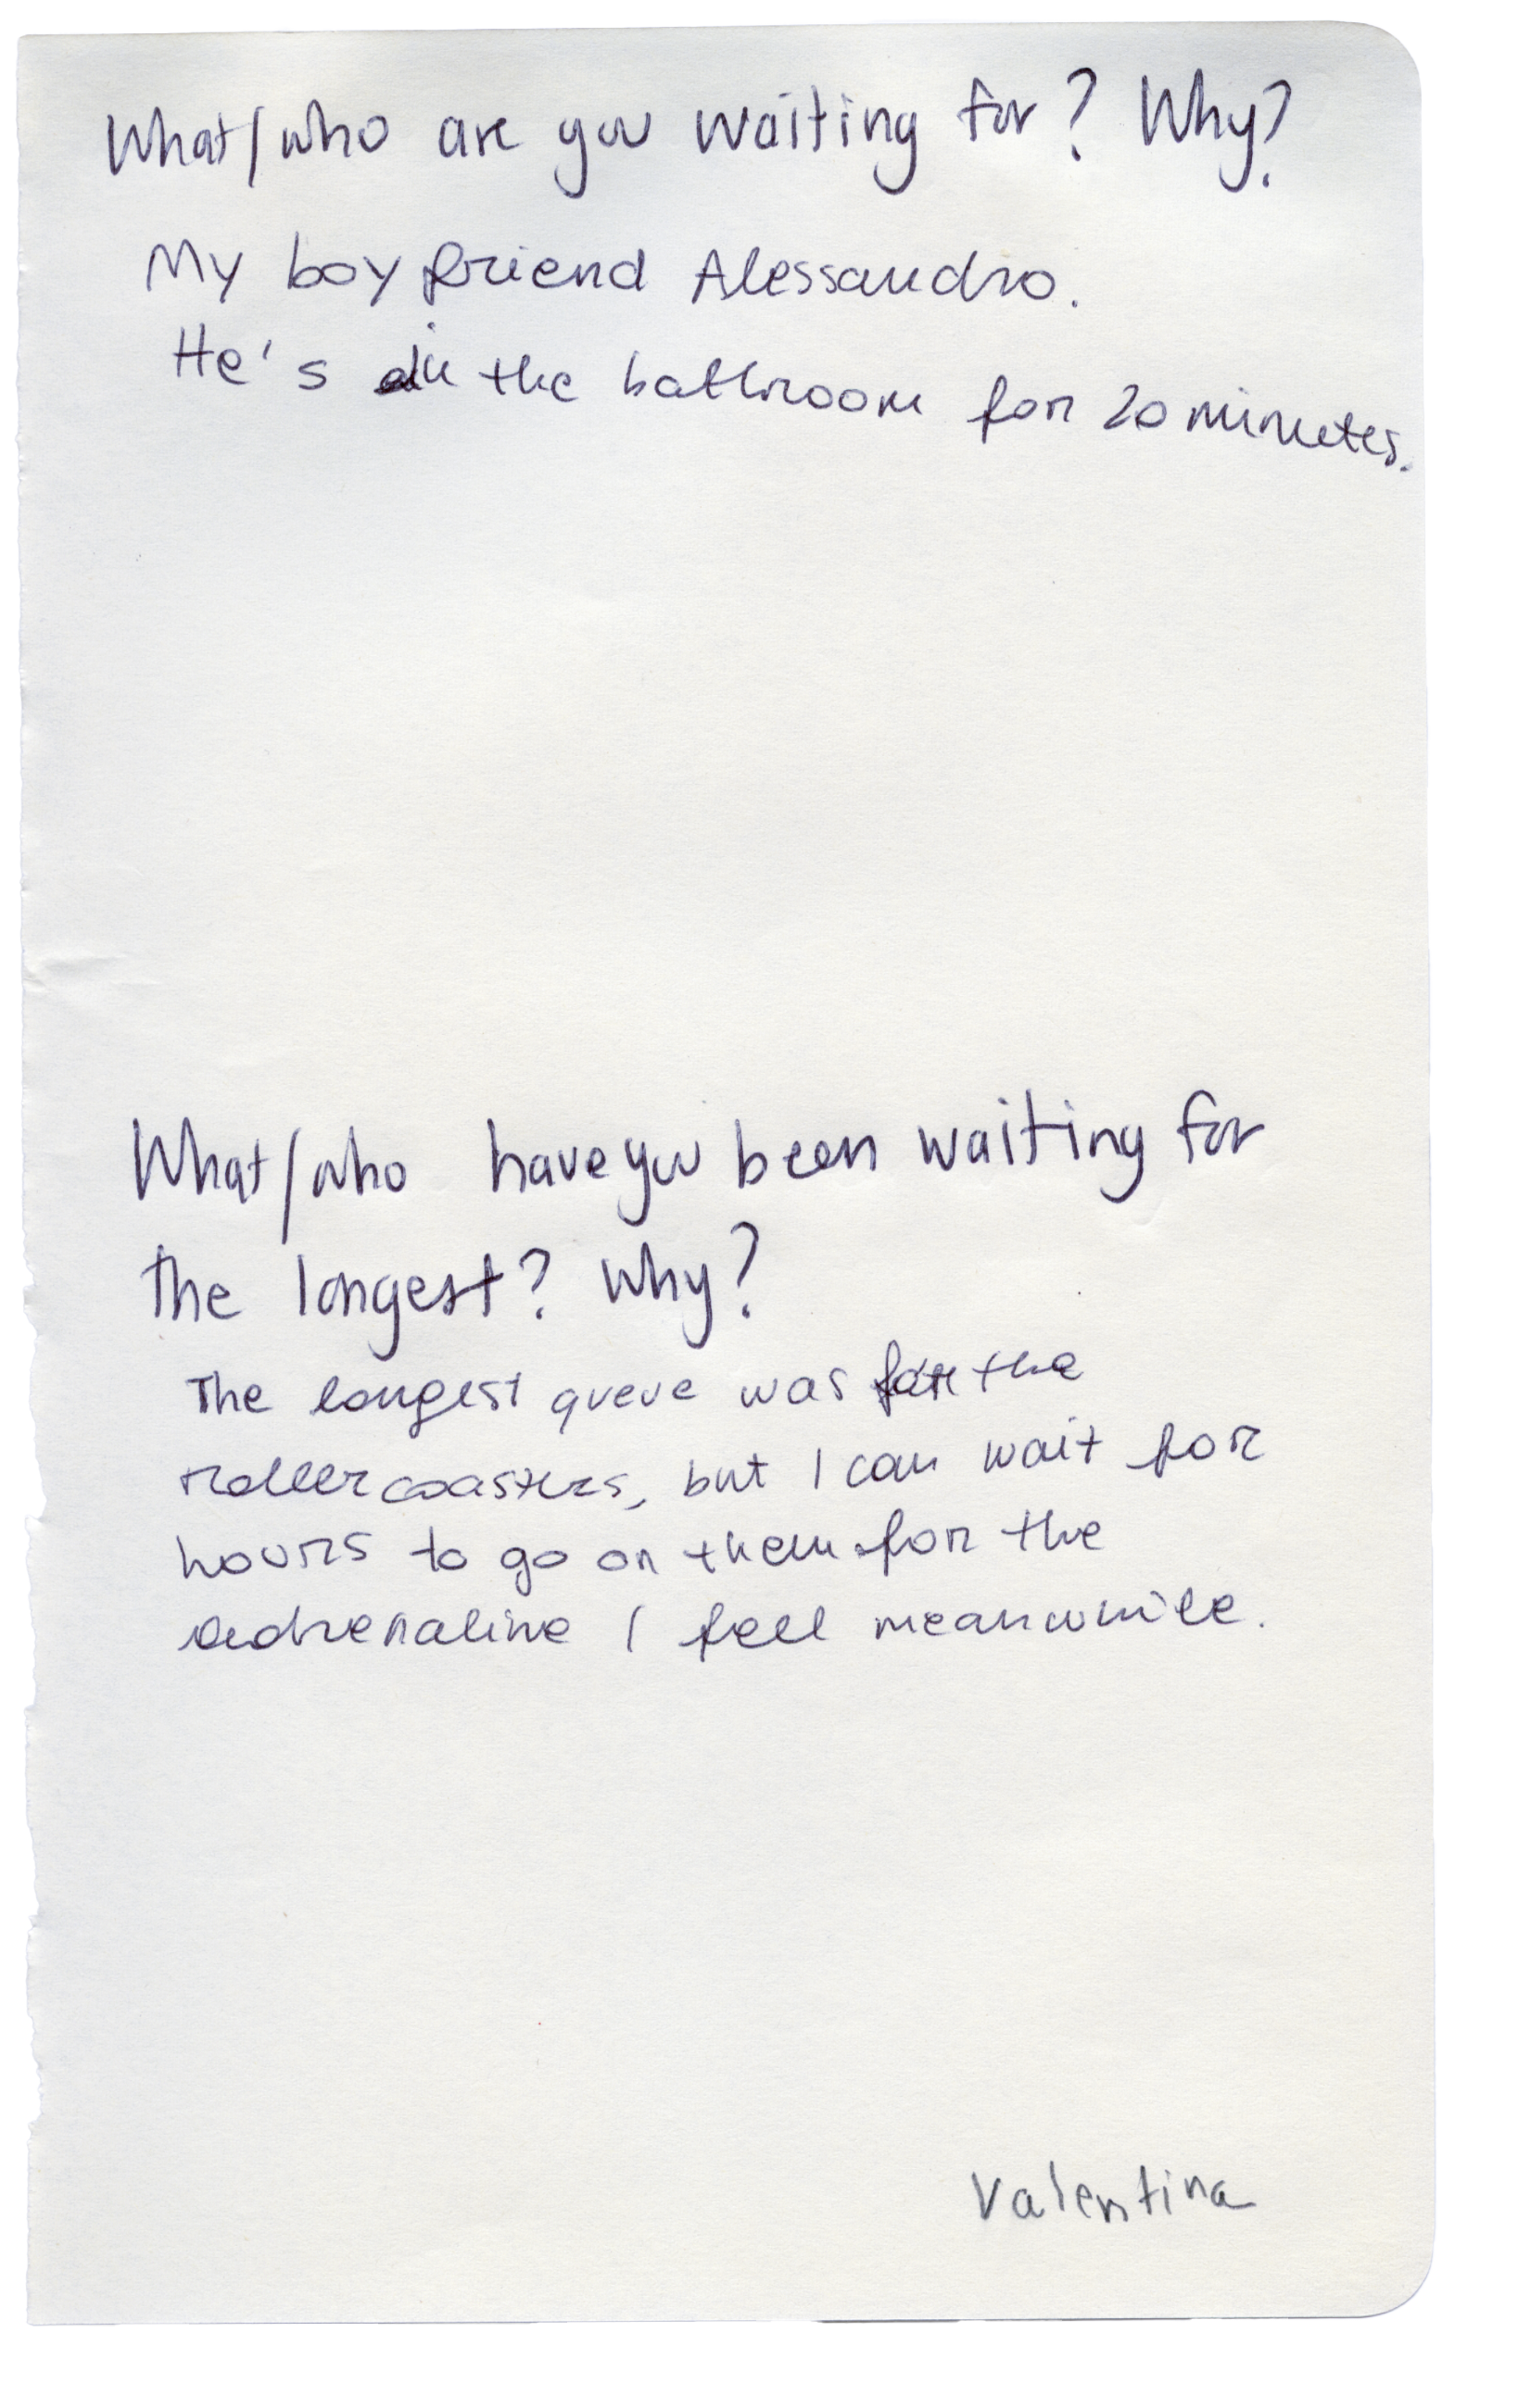 What/who are you waiting for? Why?
My boyfriend Alessandro.
He's in the bathroom for 20 minutes.
What/who have you been waiting for
the longest? Why?
The longest queue was for the
rollercoasters, but I can wait for
hours to go on them for the
adrenaline I feel meanwhile.
Valentina